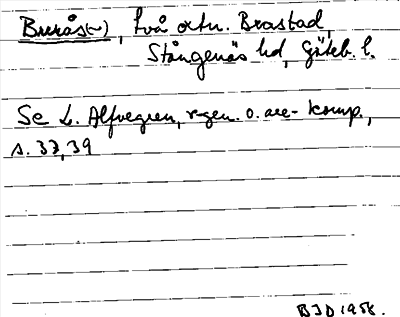 Burås(-), två ortn. Brastad,
Stångenäs hd, Göteb. l.
Se L. Alfvegren, r-gen. o. are- komp.,
s. 37, 39
BJD 1958.